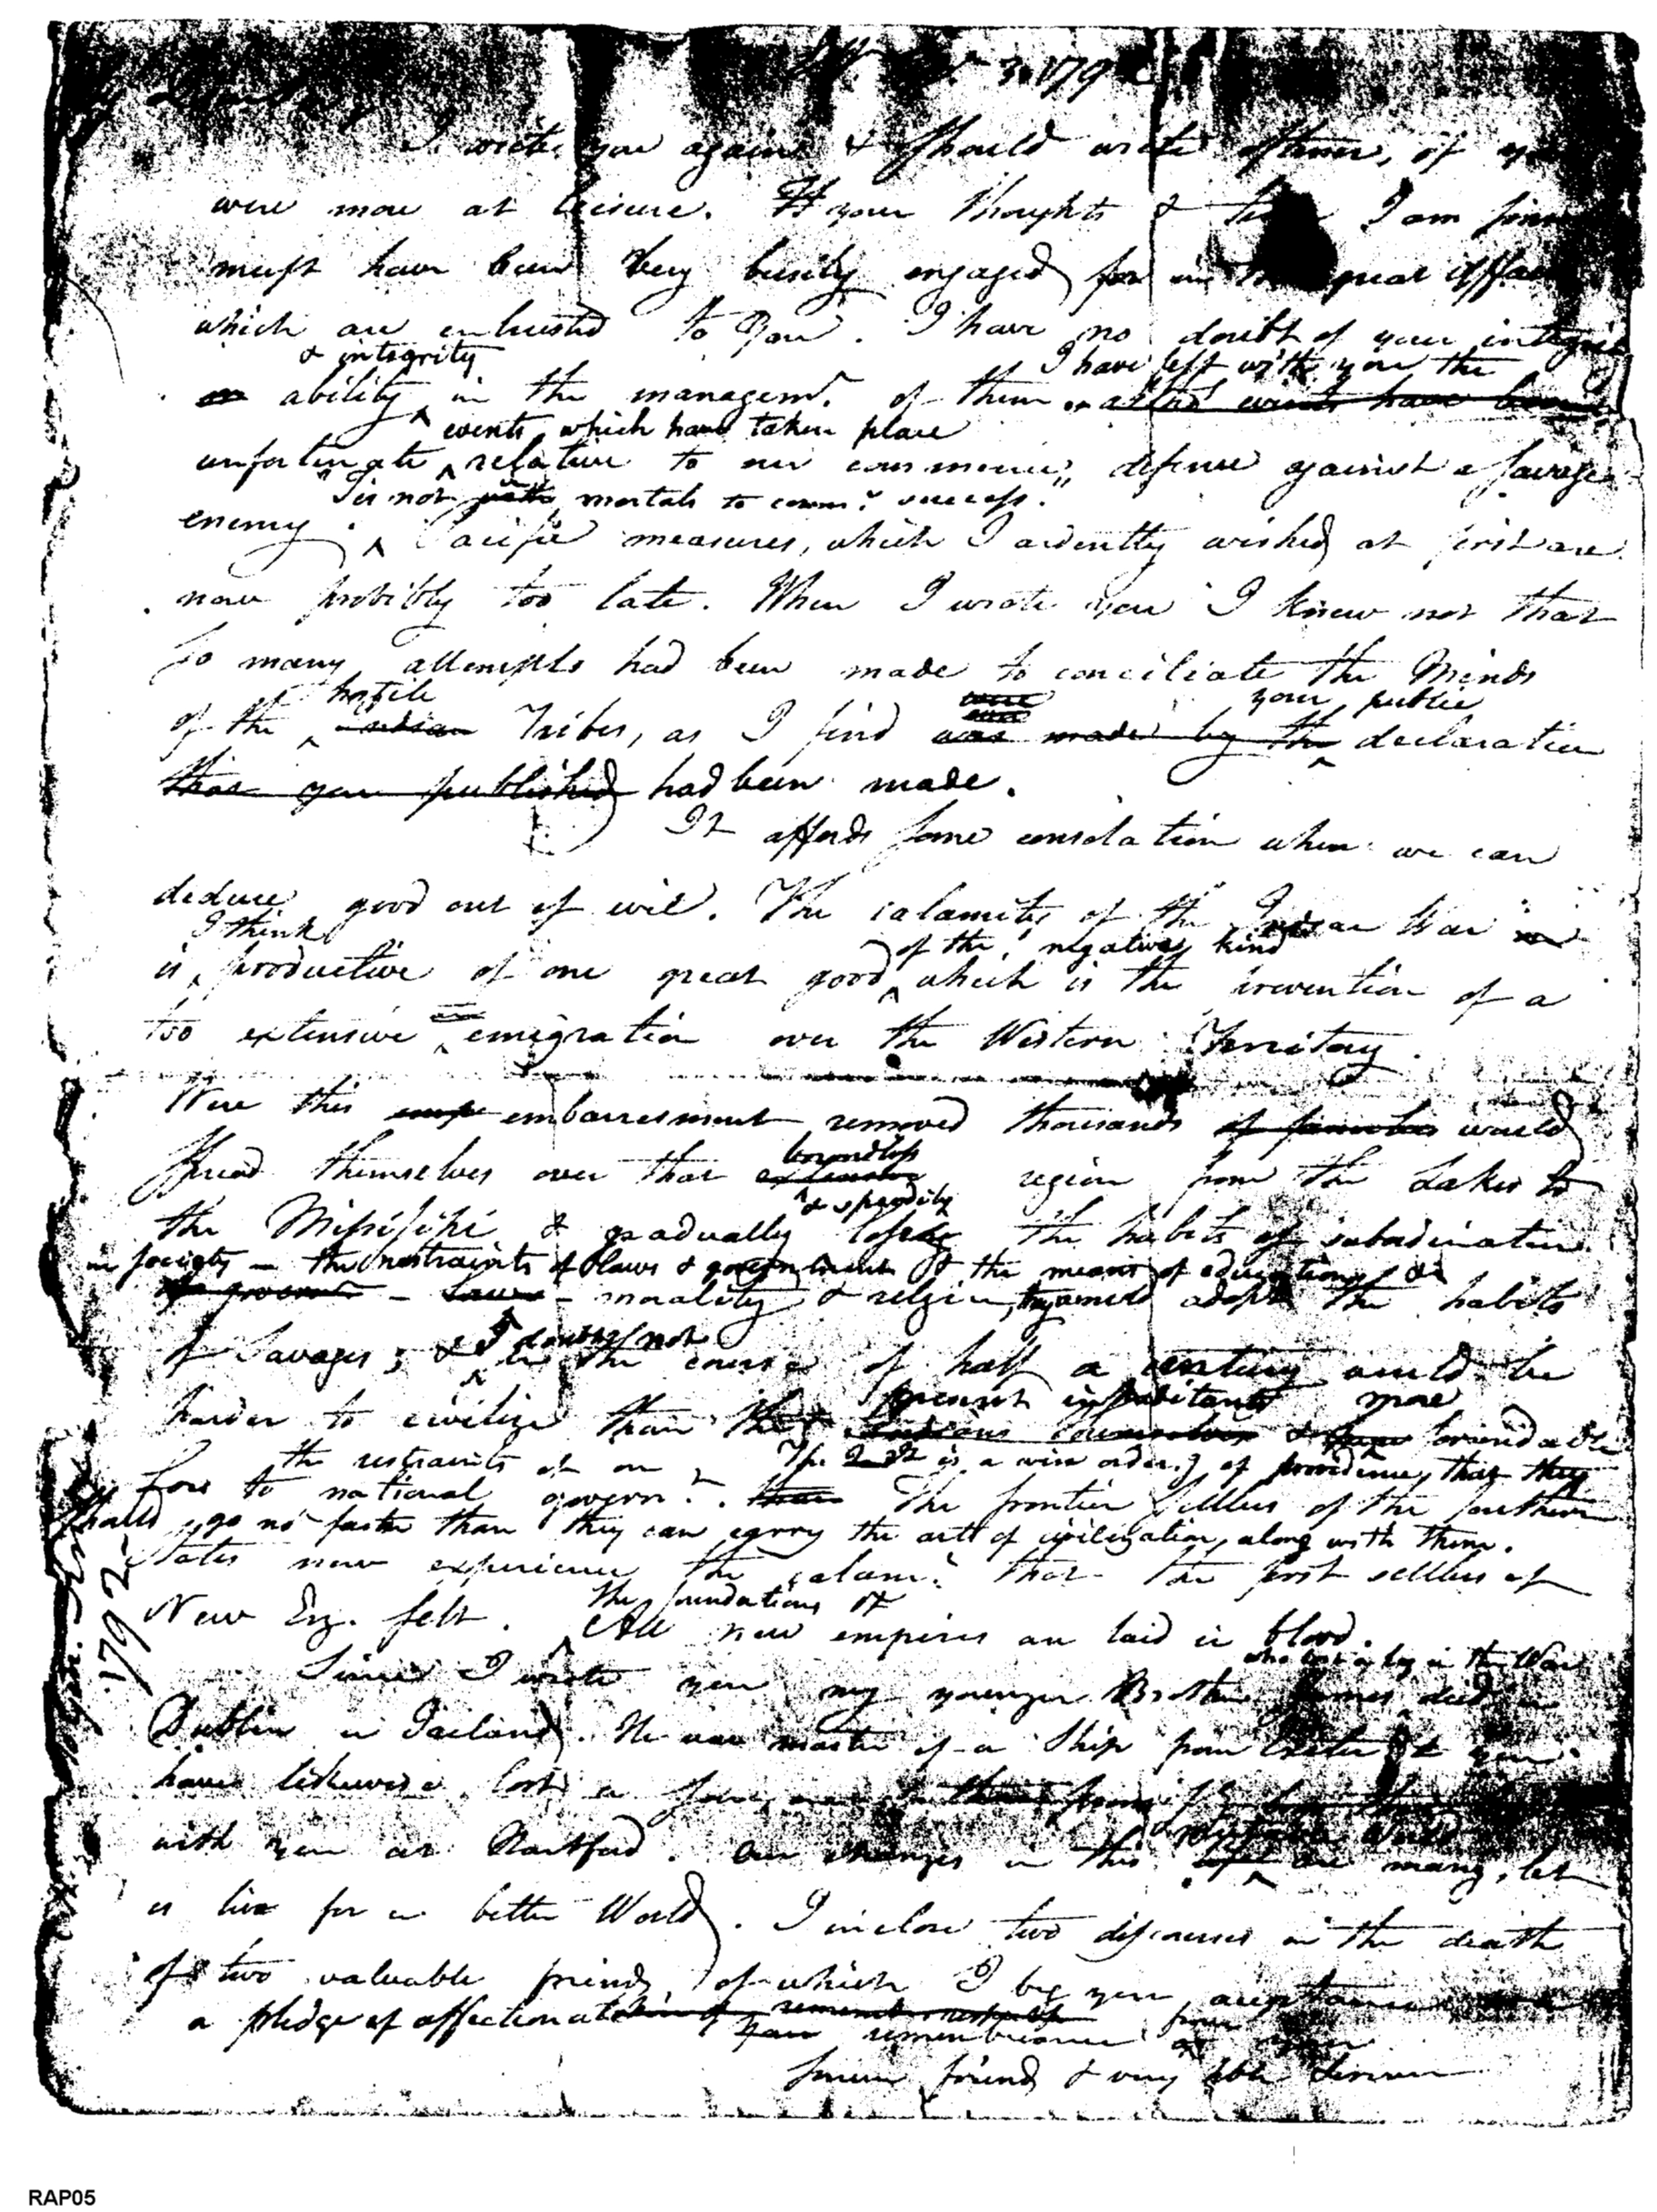 3. 179
I write you again & should write oftener, if
were more at leisure. Yr your thoughts & I am
must have been very busily engaged for in great affairs
which are entrusted to you. I have no doubt of your integrity
& integrity I have left with you the
or ability in the managemt. of them
events which have taken place
unfortunate relative to our defence against a savage
"Tis not mortals to comm.d success."
enemy. Pacific measures, which I ardently wished at first are
now probibly too late. When I wrote you I knew not that
so many attempts had been made to conciliate the Minds
hostile were your public
of the Indian Tribes, as I find was made by the declaration
that you published had been made.
It affords some consolation when we can
deduce good out of evil. The calamity of the Indian War
I think of the negative kind
is productive of one great good which is the prevention of a
too extensive emigration over the Western Territory.
Were this embarresment removed thousands of families would
boundless
spread themselves over that extensive region from the Lakes to
& speedily
the Missisipi & gradually losing the habits of subordination
in society – the restraints of laws & government & the means of education
– Laws – morality & religion, they would adopt the habits
I doubt not
of Savages; & in the course of half a century would be
present inhabitants more
harder to civilize than the Indians themselves & formidable
the restraints of our It is a wise ordering of providence that they
foes to national governt. The frontier settlers of the southern
should go no faster than they can carry the arts of civilization along with them.
States now experience the calamy. that the first settlers of
the foundations of
New Eng. felt. All new empires are laid in blood.
who lost a leg in the War
Since I wrote you my younger Brother James died in
Dublin in Ireland. He was master of a Ship from Exeter & you
have likewise lost a
with you at Hartford. Our changes in this World are many, let
us live for a better World. I inclose two discourses on the death
of two valuable friends of which I beg your acceptance
a pledge of affectionate
remembrance
friend & very Servant
1792
RAP05